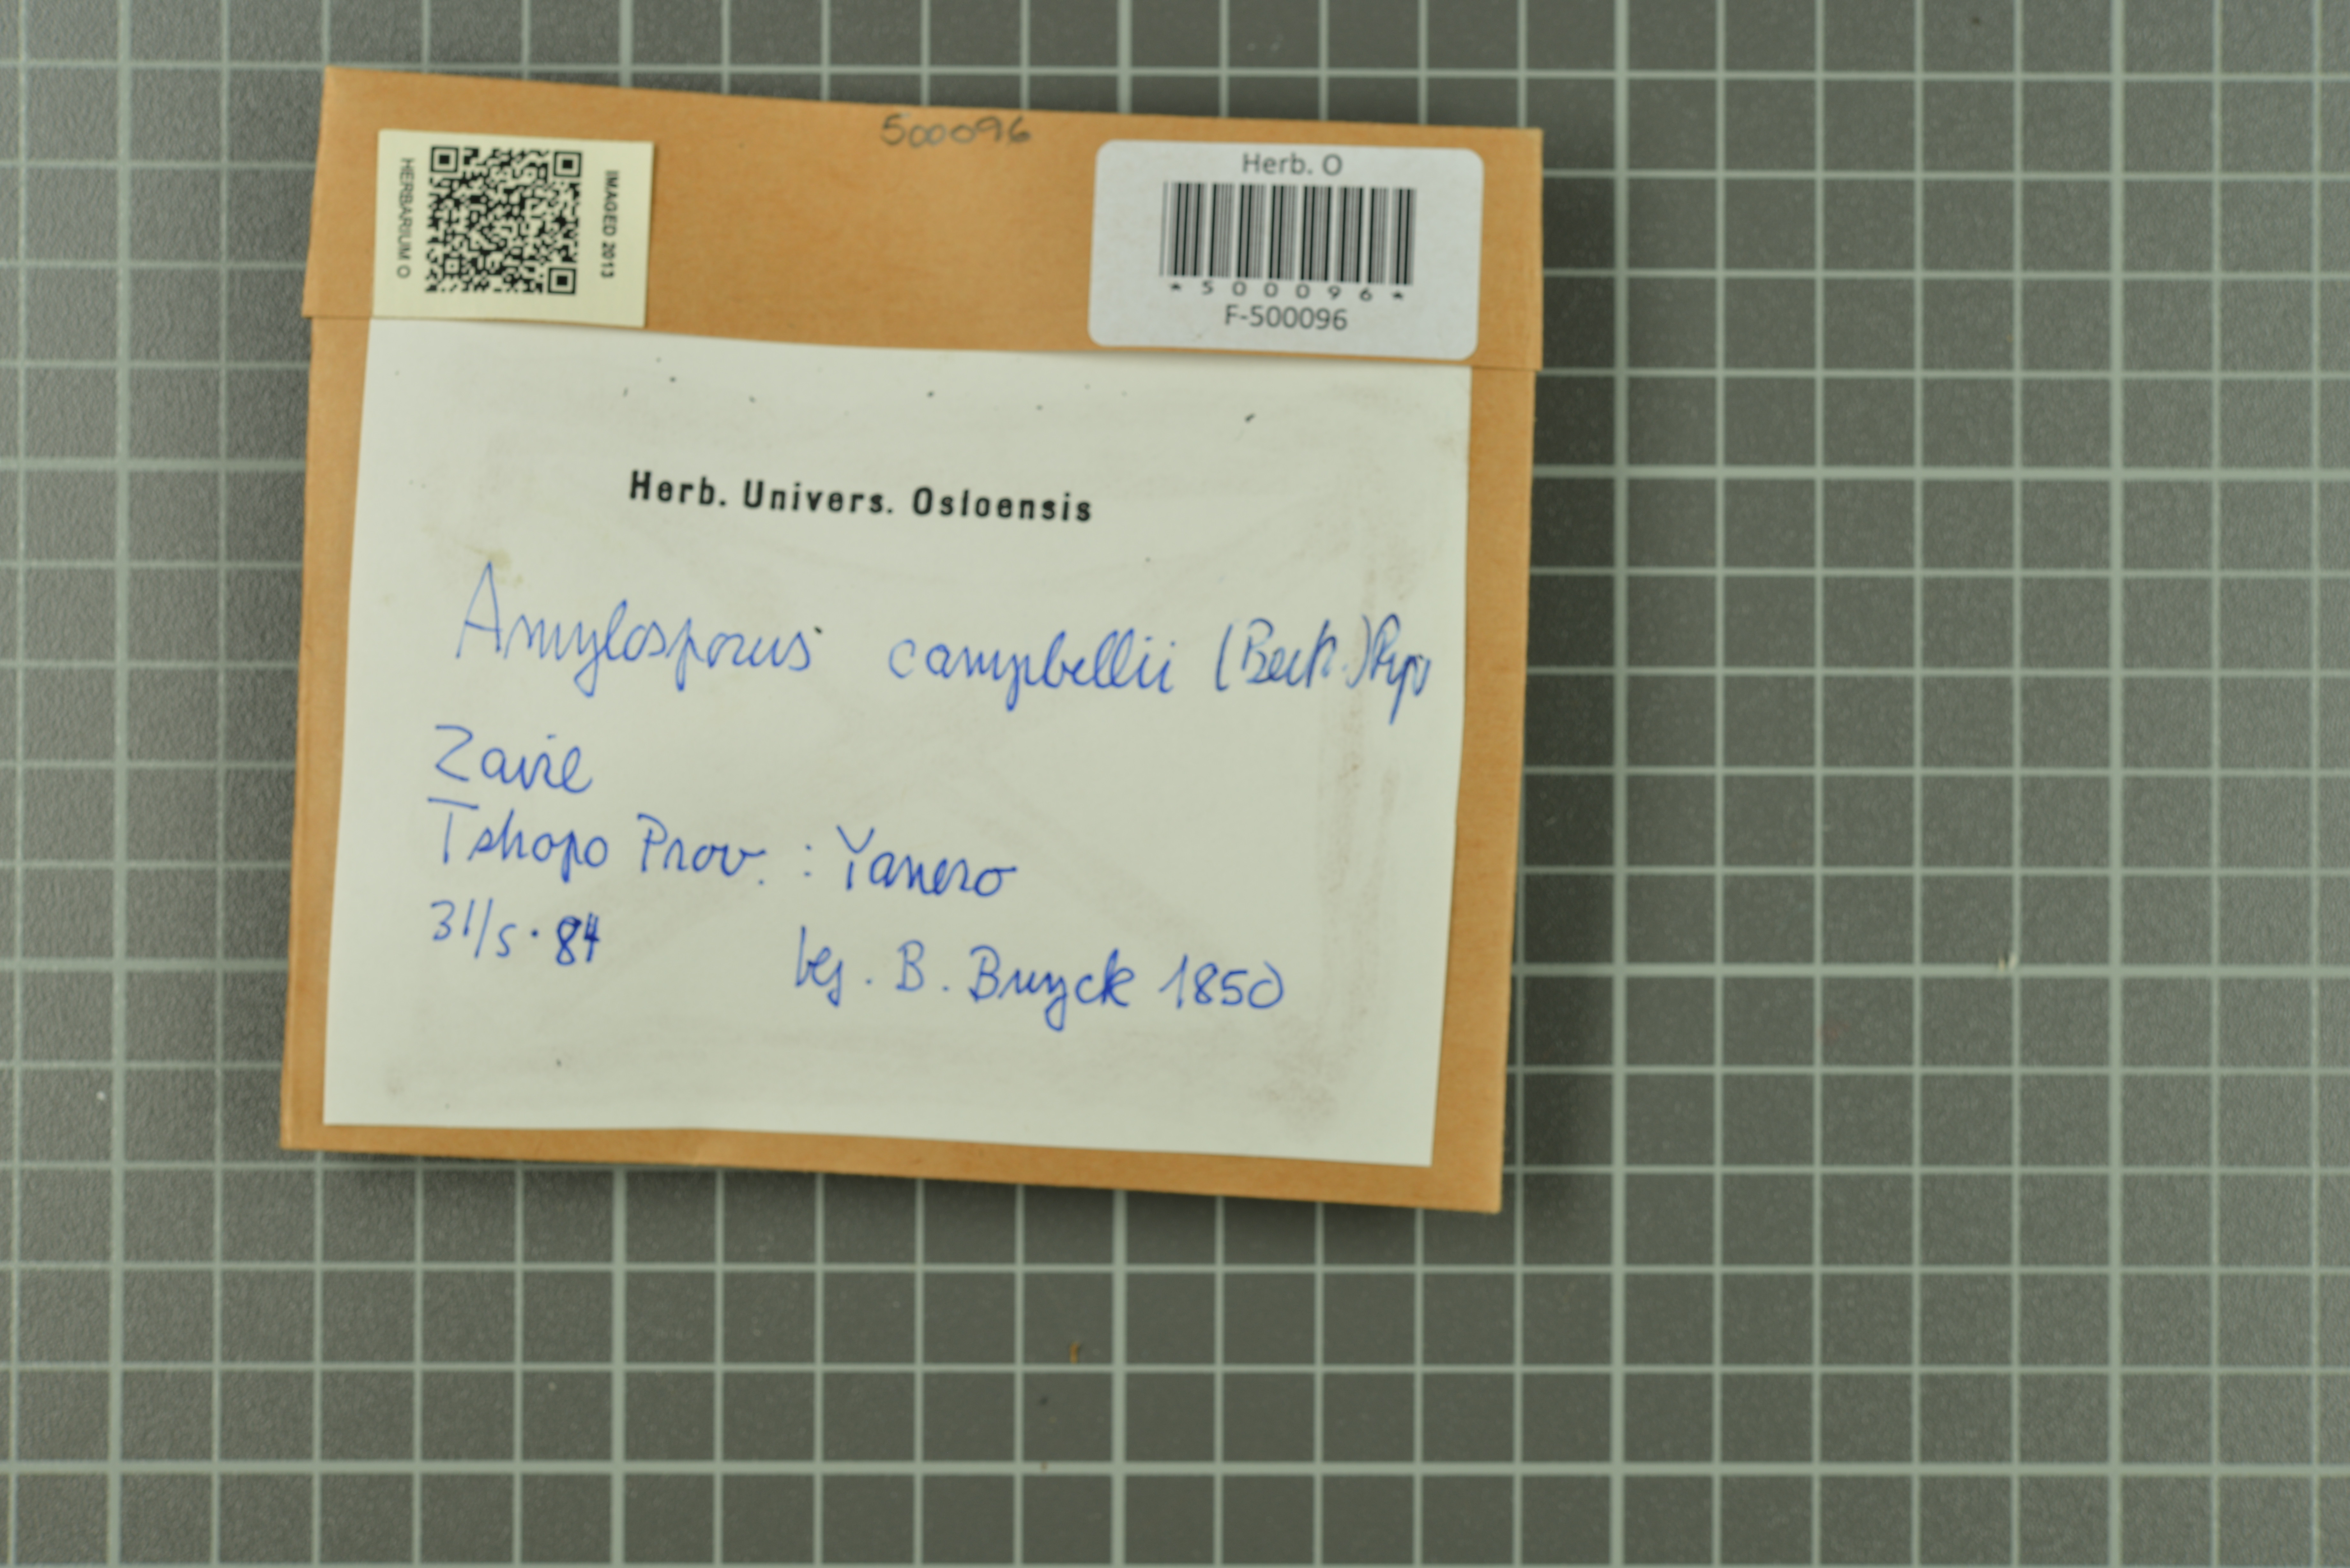 500096
HERBARIUM O
IMAGED 2013
Herb. O
*500096*
F-500096
Herb. Univers. Osloensis
Amylosporus campbellii (Berk.) Ryv
Zaire
Tshopo Prov. : Yanero
31/5.84
leg. B. Buyck 1850